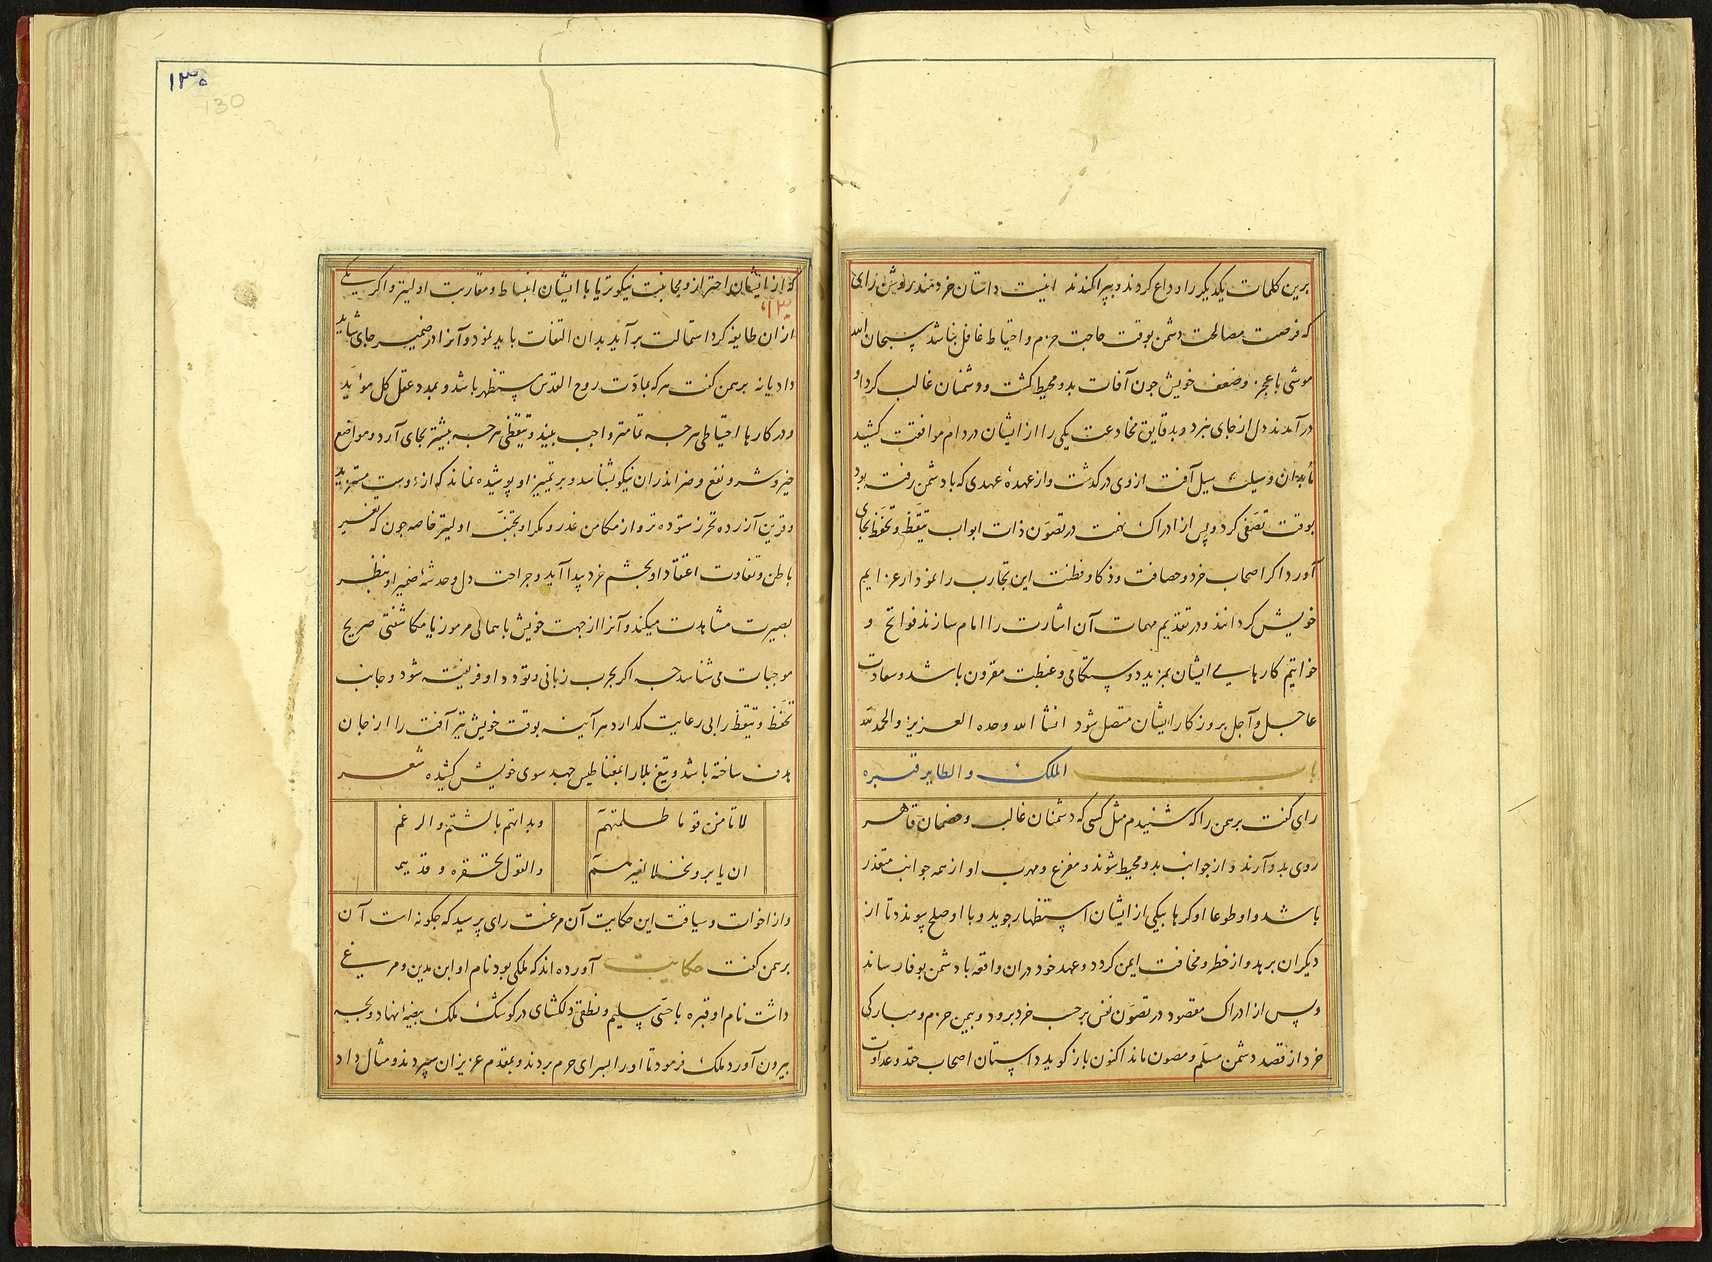 برین کلمات یکدیگر را وداع کردند و بپراکندند اینست داستان خردمند روشن رای
که فرصت مصالحت دشمن بوقت حاجت حزم و احتیاط غافل نباشد سبحان الله
موشی با عجز و ضعف خویش چون آفات بدو محیط کشت و دشمنان غالب کرد او
درآمدند دل از جای نبرد و بدقایق مخادعت یکی را از ایشان در دام موافقت کشید
تا بدان وسیلت سیل آفت از وی درکذشت و از عهدهٔ عهدی که با دشمن رفته بود
بوقت تقصی کرد و پس از ادراک نهمت در تصون ذات ابواب تیقظ و تحفظ بجای
آورد اکر اصحاب خرد و حصافت و ذکا و فطنت این تجارب را نمودار عزایم
خویش کردانند و در تقدیم مهمات آن اشارت را امام سازند فواتح و
خواتیم کارهای ایشان بمزید دوستکامی و غبطت مقرون باشد و سعادت
عاجل و آجل بروزکار ایشان متصل شود انشا الله وحده العزیز والحمد لله
باب الملک والطایر قبره
رای کفت برهمن را که شنیدم مثل کسی که دشمنان غالب و خصمان قاهر
روی بدو آرند و از جوانب بدو محیط شوند و مفزع و مهرب او از همه جوانب متعذر
باشد و او طوعا او کرها بیکی از ایشان استظهار جوید و با او صلح پیوندد تا از
دیکران برهد و از خطر و مخافت ایمن کردد و عهد خود دران واقعه با دشمن بوفا رساند
و پس از ادراک مقصود در تصون نفس برحسب خرد برود و بیمن حزم و مبارکی
خرد از قصد دشمن مسلم و مصون ماند اکنون باز کوید داستان اصحاب حقد و عداوت
۱۳۰
130
که از ایشان احتراز و مجانبت نیکوتر یا با ایشان انبساط و مقاربت اولیتر و اکر یکی
از ان طایفه کرد استمالت برآید بدان التفات باید نمود و آنرا در ضمیر جای شاید
داد یا نه برهمن کفت هرکه بمادت روح القدس مستظهر باشد و بمدد عقل کل مؤید
و در کارها احتیاطی هرچه تمامتر واجب بیند و تیقظی هرچه بیشتر بجای آرد و مواضع
خیر و شر و نفع و ضر اندران نیکو بشناسد و بر تمییز او پوشیده نماند که از دوست مستزید
و قرین آزرده تحرز ستوده تر و از مکامن غدر و مکر او تجنب اولیتر خاصه چون که تغییر
باطن و تفاوت اعتقاد او بچشم خرد پیدا آید و جراحت دل و خدشهٔ ضمیر او بنظر
بصیرت مشاهدت میکند و آنرا از جهت خویش باهمالی مرموز یا مکاشفتی صریح
موجبات می شناسد چه اکر بچرب زبانی و تودد او فریفته شود و جانب
تحفظ و تیقظ را بی رعایت کذارد هر آینه بوقت خویش تیر آفت را از جان
هدف ساخته باشد و تیغ بلا را بمغناطیس جهد سوی خویش کشیده شعر
لا تامنن قوما ظلمتهم وبداتهم بالشتم والرغم
ان یابروا نخلا لغیرهم والقول تحقره وقد ینمی
و از اخوات و سیاقت این حکایت آن مرغست رای پرسید که چکونه است آن
برهمن کفت حکایت آورده اند که ملکی بود نام او ابن مدین و مرغی
داشت نام او قبره با حسی سلیم و نطقی دلکشای در کوشک ملک بیضه نهاد و بچه
بیرون آورد ملک فرمود تا او را بسرای حرم بردند و بمقدم عزیزان سپردند و مثال داد